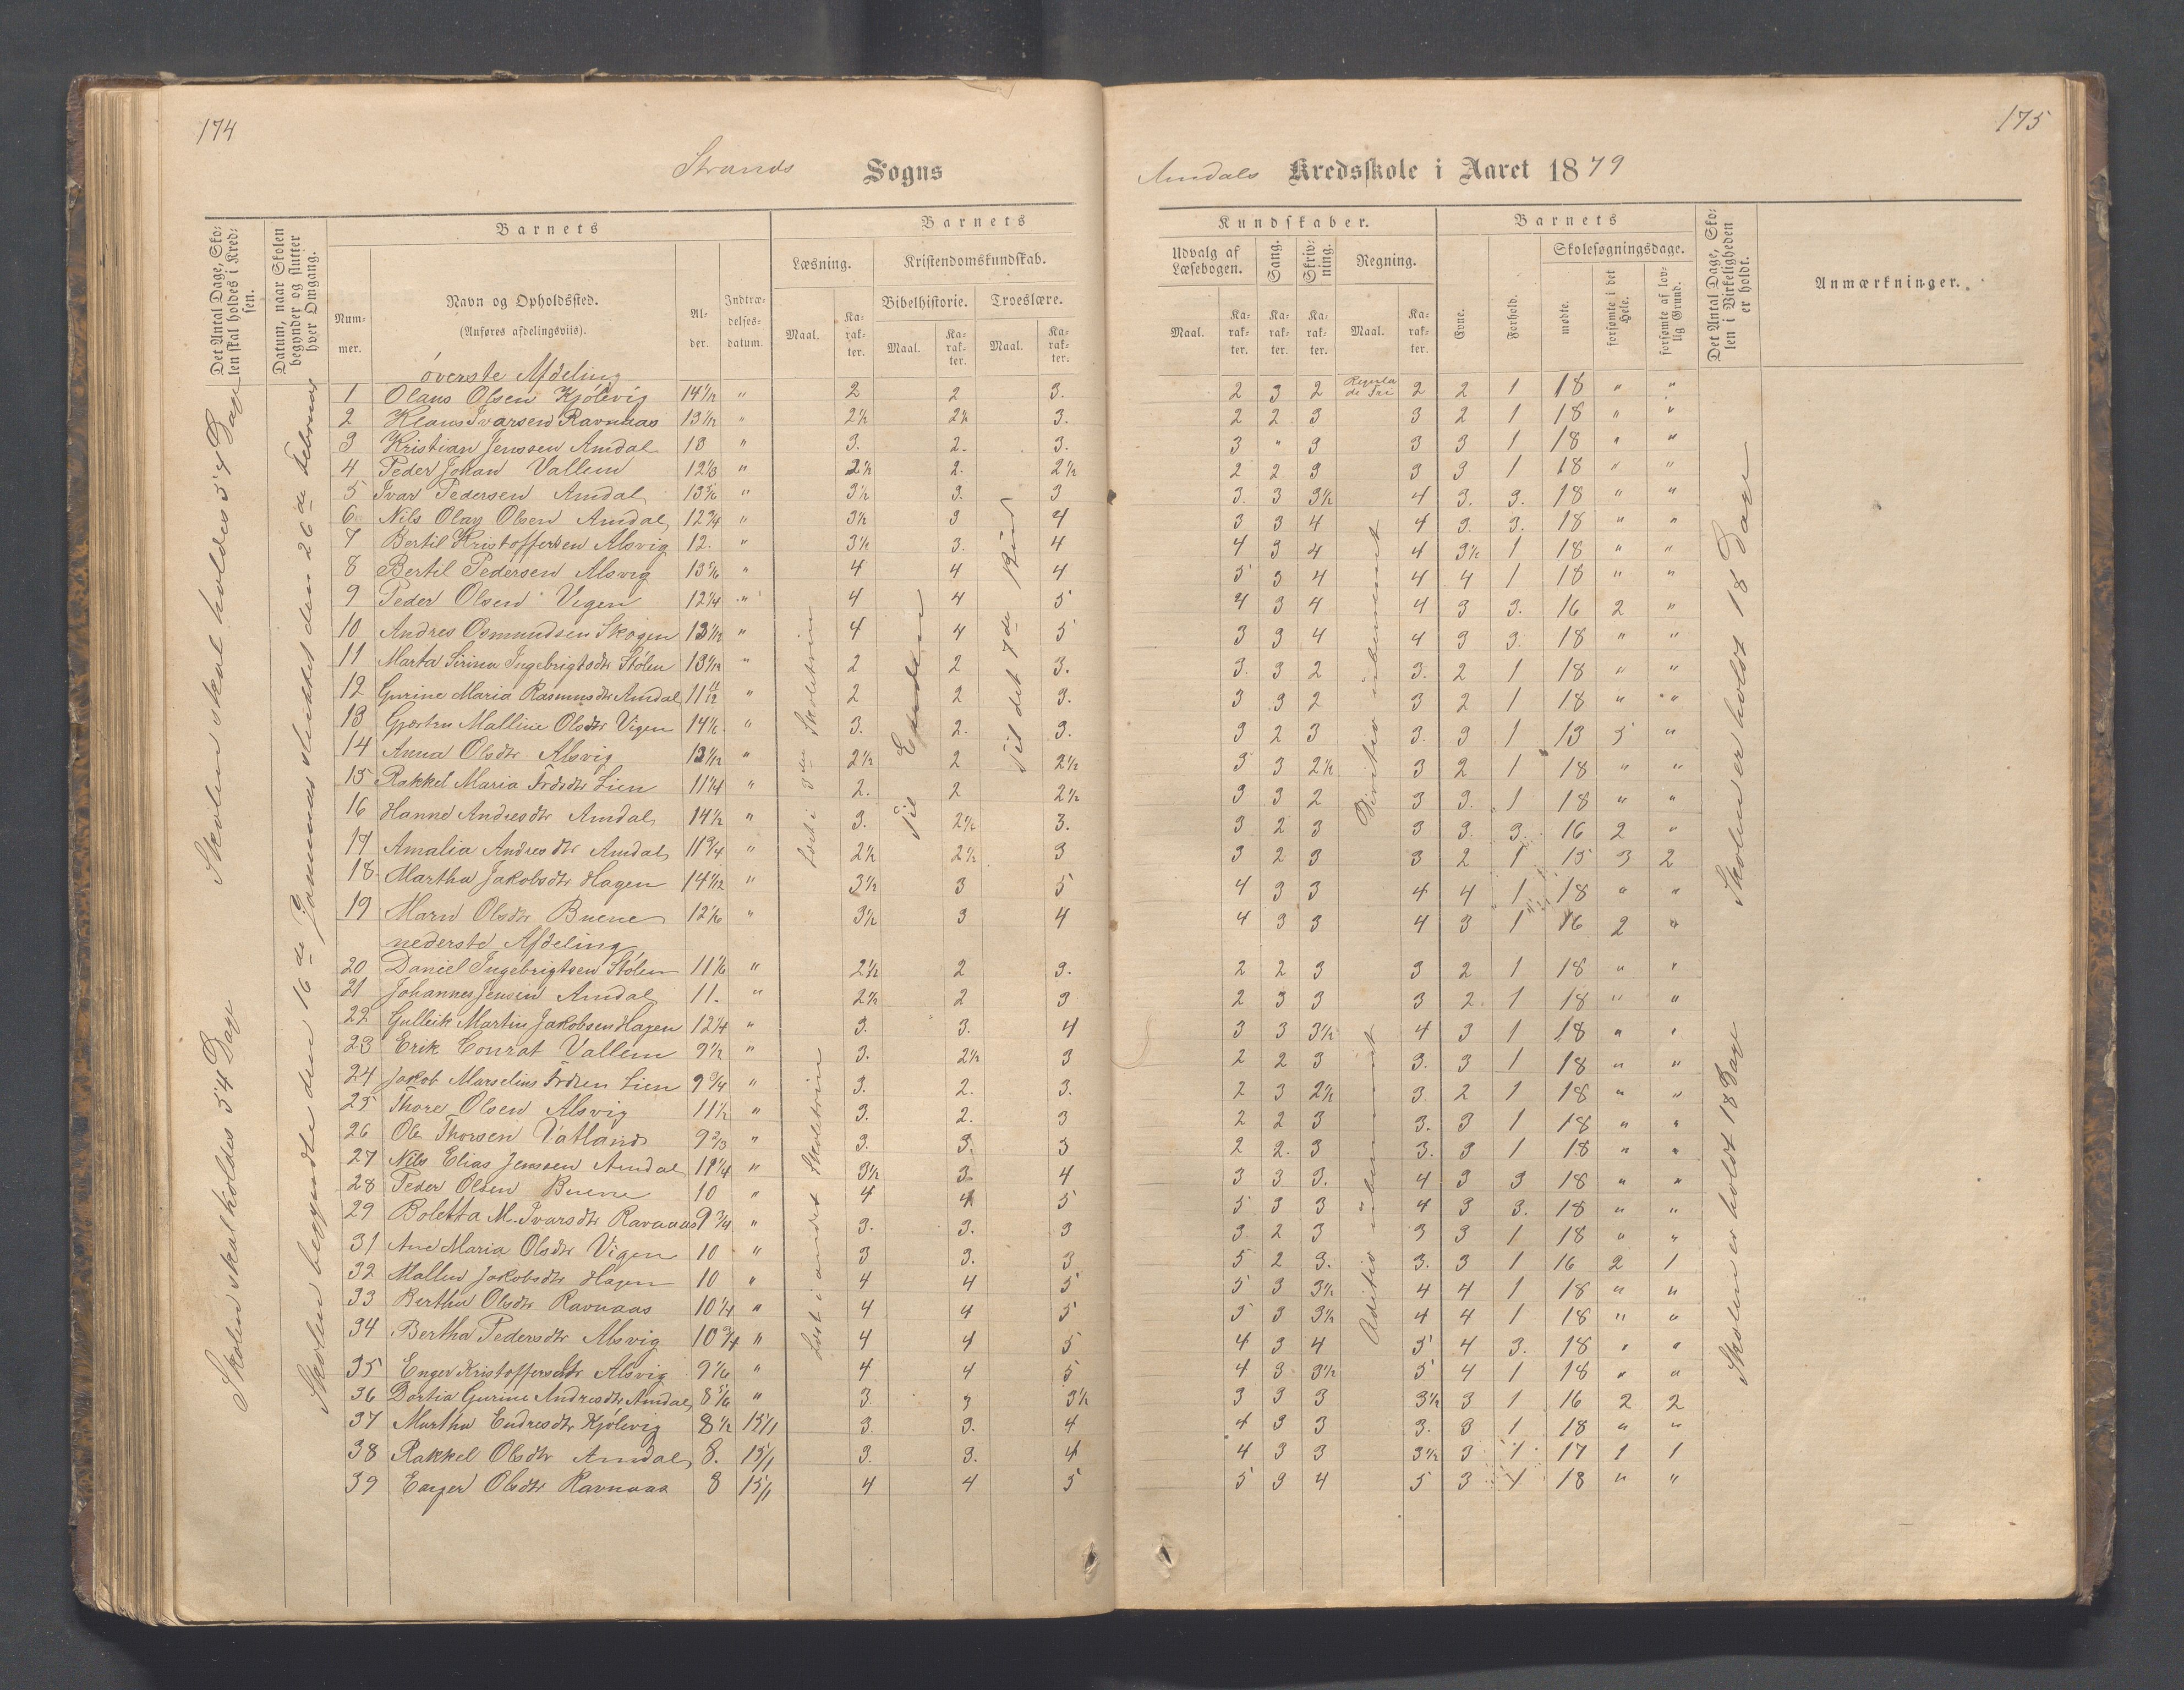 174
175
Strands Sogns
Amdals Kredsskole i Aaret 1879
Det Antal Dage, Skolen skal holdes i Kredsen.
Datum, naar Skolen begynder og slutter hver Omgang.
Barnets
Nummer.
Navn og Opholdssted.
(Anføres afdelingsviis).
Alder.
Indtrædelsesdatum.
Barnets
Læsning.
Kristendomskundskab.
Bibelhistorie.
Troeslære.
Maal. Karakter. Maal. Karakter. Maal. Karakter.
Kundskaber.
Udvalg af Læsebogen.
Sang.
Skrivning.
Regning.
Maal. Karakter. Karakter. Karakter. Maal. Karakter.
Barnets
Evne.
Forhold.
Skolesøgningsdage.
mødte.
forsømte i det Hele.
forsømte af lovlig Grund.
Det Antal Dage, Skolen i Virkeligheden er holdt.
Anmærkninger.
Skolen skal holdes 54 Dage
Skolen skal holdes 54 Dage
Skolen begyndte den 16de Januar sluttet den 26de Februar
Læst i 3die Skoletrin
Til Enden
Til det 7de Bud
Læst i andet Skoletrin
Divitio
Aditio
Skolen er holdt 18 Dage
Skolen er holdt 18 Dage
øverste Afdeling
1 Olaus Olsen Kjölevig 14 1/12 " 2 2 3. 2 3 2 Regula de Tri 2 2 1 18 " "
2 Klaus Ivarsen Ravnaas 13 1/12 " 2½ 2½ 3. 2 2 3 3 2 1 18 " "
3 Kristian Jenssen Amdal 13 " 3. 2. 3. 3 " 3 3 3 1 18 " "
4 Peder Johan Vallem 12 1/3 " 2½ 2. 2½ 2 2 3 3 3 1 18 " "
5 Ivar Pedersen Amdal 13 5/6 " 3½ 3. 3 3. 3 3½ 4 3. 3. 18 " "
6 Nils Olay Olsen Amdal 12 3/4 " 3½ 3 4 3 3 4 4 3. 3. 18 " "
7 Bertil Kristoffersen Alsvig 12. " 3½ 3. 4 4 3 4 4 3½ 1 18 " "
8 Bertil Pedersen Alsvig 13 5/6 " 4 4 4 5 3 4 4 4 1 18 " "
9 Peder Olsen Vigen 12 1/4 " 4 4 5 4 3 4 4 3 3. 16 2 "
10 Andres Osmundsen Skogen 13 1/12 " 4 4 5 3 3 4 4 3 3. 18 " "
11 Marta Sirina Ingebrigtsdtr Stölen 13 1/12 " 2 2 3. 3. 3 2 3. 2 1 18 " "
12 Gurine Maria Rasmusdtr Amdal 11 11/12 " 2 2 3. 3 3 2 3 2 1 18 " "
13 Gjertru Malline Olsdtr Vigen 14 1/6 " 3. 2. 3. 3 2 3 3. 3 1 13 5 "
14 Anna Olsdtr Alsvig 13 1/12 " 2½ 2 2½ 3 3 2½ 3 2 1 18 " "
15 Rakkel Maria Frdsdtr Lien 11 1/4 " 2. 2 2½ 3 3 2 3 3. 1 18 " "
16 Hanne Andresdtr Amdal 14½ " 3. 2½ 3. 3 2 3 3 3. 3. 16 2 "
17 Amalia Andresdtr Amdal 11 3/4 " 2½ 2½ 3 3 2 3 3 2 1 15 3 2
18 Martha Jakobsdtr Hagen 14 1/12 " 3½ 3 5 4 3 3 4 4 1 18 " "
19 Maru Olsdtr Buene 12 1/6 " 3½ 3 4 4 3 3 4 3 1 16 2 "
nederste Afdeling
20 Daniel Ingebrigtsen Stölen 11 1/6 " 2½ 2 3. 2 2 3 3 2 1 18 " "
21 Johannes Jensen Amdal 11. " 2½ 2 3 2 3 3 3 2. 1 18 " "
22 Gulleik Martin Jakobsen Hagen 12 1/4 " 3. 3. 4 3 3 3½ 4 3 1 18 " "
23 Erik Conrat Vallem 9½ " 3. 2½ 3 2 2 3 3. 3 1 18 " "
24 Jakob Marselius Frdsen Lien 9 3/4 " 3. 2. 3. 2 3 2½ 3. 2 1 18 " "
25 Thore Olsen Alsvig 11½ " 3. 2. 3 2 2 3 3. 3 1 18 " "
26 Ole Thorsen Vatland 9 2/3 " 3. 3. 3 2 2. 3 3. 3 1 18 " "
27 Nils Elias Jenssen Amdal 11 1/4 " 3½ 3. 4 3 3 3. 4 3 3 18 " "
28 Peder Olsen Buene 10 " 4 4 5 5 3 3 4 3 3. 18 " "
29 Boletta M. Ivarsdtr Ravnaas 9 3/4 " 3. 3. 3 3. 2 3 3 3 1 18 " "
31 Ane Maria Olsdtr Vigen 10 " 3 3. 3 5 2 3. 3. 3 1 16 2 1
32 Mallin Jakobsdtr Hagen 10 " 4 4 5 5 3 3½ 4 4 1 18 " "
33 Bertha Olsdtr Ravnaas 10 1/4 " 4 4 5 5 3 3½ 4 4 1 18 " "
34 Bertha Pedersdtr Alsvig 10 3/4 " 4 4 5 4 3 4 5 4 3. 18 " "
35 Enger Kristoffersdtr Alsvig 9 1/6 " 4 4 5 4 3 3½ 5 4 1 18 " "
36 Dortia Gurine Andresdtr Amdal 8 5/6 " 3. 3 3½ 3 3 3 3½ 3 1 16 2 2
37 Martha Endresdtr Kjölevig 8½ 15/1 3. 3. 4 4 3 3 3. 3 1 18 " "
38 Rakkel Olsdtr Amdal 8. 15/1 3. 3. 4 4 3 3 3½ 3 1 17 1 1
39 Enger Olsdtr Ravnaas 8 15/1 4 4 5 5 3 4 5 3 1 18 " "